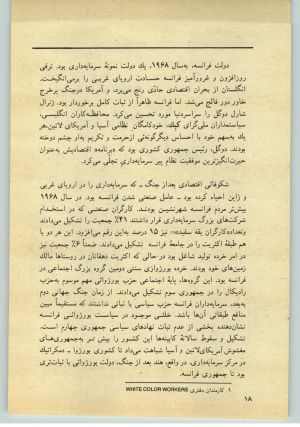 دولت فرانسه، به‌سال ۱۹۶۸، یك دولت نمونهٔ سرمایه‌داری بود. ترقی
روزافزون و غرورآمیز فرانسه حسادت اروپای غربی را برمی‌انگیخت.
انگلستان از بحران اقتصادی جاری رنج می‌برد، و آمریکا درجنگ برخرج
خاور دور فالج می‌شد. اما فرانسه ظاهراً از ثبات کامل برخوردار بود. ژنرال
شارل دوگل را سراسردنیا مورد تحسین می‌کرد. محافظه‌کاران انگلیسی،
سیاستمداران ملی‌گرای کبك، خودکامگان نظامی آسیا و آمریکای لاتین،هر
یك به‌سهم خود با احساس دیگرگونه‌ئی ازحرمت و تکریم به‌او چشم دوخته
بودند. دوگل، رئیس جمهوری کشوری بود که «برنامه» اقتصادیش به‌عنوان
حیرت‌انگیزترین موفقیت نظام پیر سرمایه‌داری تجلی می‌کرد.
شکوفائی اقتصادی بعداز جنگ ـ که سرمایه‌داری را در اروپای غربی
و ژاپن احیاء کرده بود ـ عامل صنعتی شدن فرانسه بود. در سال ۱۹۶۸
بیش‌تر مردم فرانسه شهرنشین بودند. کارگران صنعتی که در استخدام
شرکت‌های بزرگ سرمایه‌داری قرار داشتند ۴۱٪ جمعیت را تشکیل می‌دادند
وتعدادکارگران یقه سفید«۱» نیز ۱۵ درصد به‌این رقم می‌افزود. این هر دو با
هم طبقهٔ اکثریت را درجامعهٔ فرانسه تشکیل می‌دادند. ضمناً ۶٪ جمعیت نیز
در امر خرده تولید شاغل بود در حالی که اکثریت دهقانان در روستاها مالك
زمین‌های خود بودند. خرده بورژوازی سنتی دومین گروه بزرگ اجتماعی در
فرانسه بود. این گروه‌ها، پایهٔ اجتماعی حزب بورژوائی مهم موسوم به‌حزب
رادیکال را در جمهوری سوم تشکیل می‌دادند. از زمان جنگ جهانی دوم
به‌بعد، سرمایه‌داران فرانسه حزب سیاسی با ثباتی نداشتند که مستقیماً مبین
منافع طبقاتی آن‌ها باشد. خلئی موجود در سیاست بورژواتی فرانسه
نشان‌دهنده بخشی از عدم ثبات نهادهای سیاسی جمهوری چهارم است.
تشکیل و سقوط سالانهٔ کابینه‌ها این کشور را بیش تر به‌جمهوری‌های
مغشوش آمریکای‌لاتین و آسیا شباهت می‌داد تا کشوری بورژوا ـ دمکراتیك
در مرکز سرمایه‌داری. در واقع، هند بعد از جنگ، دولت بورژوائی با ثبات‌تری
بود تا جمهوری فرانسه.
۱. کارمندان دفتری WHITE COLOR WORKERS
۱۸